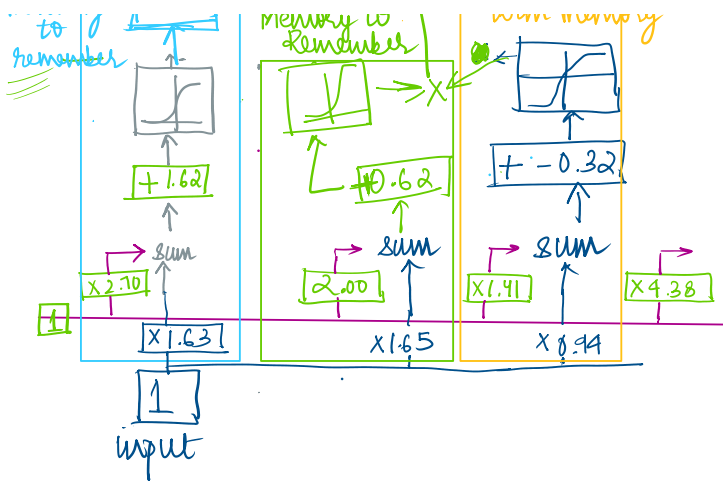 to
remember
Memory to
Remember
term memory
X
+ 1.62
+0.62
+ -0.32
sum
sum
sum
X2.70
2.00
X1.41
X4.38
1
X1.63
X1.65
X0.94
1
input